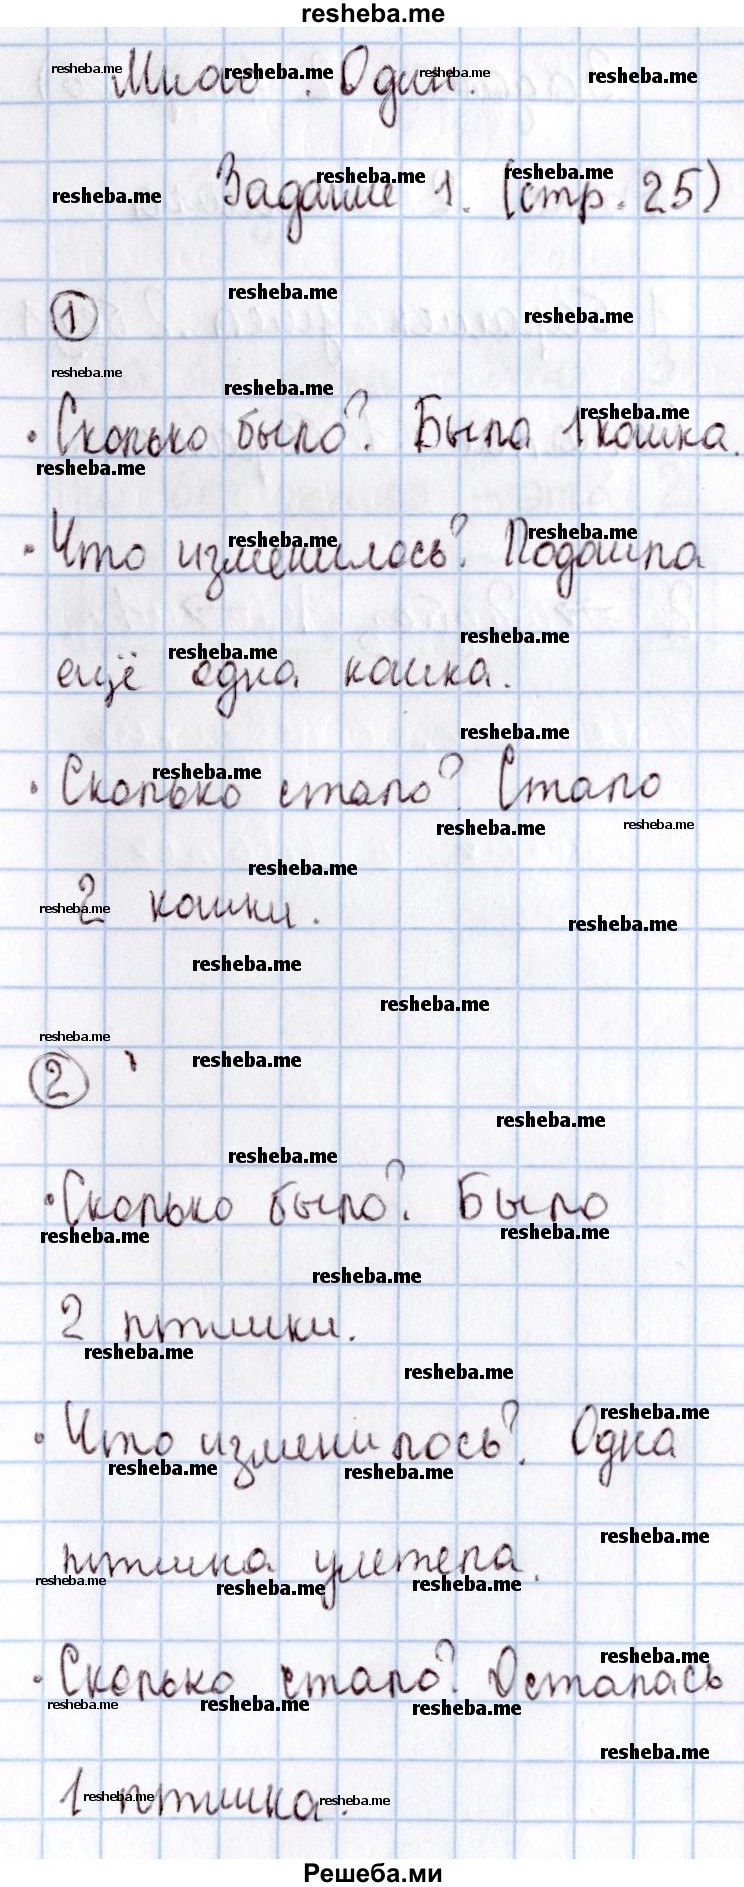 resheba.me
Много. Один.
Задание 1. (стр. 25)
1
• Сколько было? Была 1 кошка.
• Что изменилось? Подошла
ещё одна кошка.
• Сколько стало? Стало
2 кошки.
2
• Сколько было? Было
2 птички.
• Что изменилось? Одна
птичка улетела.
• Сколько стало? Осталась
1 птичка.
Решеба.ми